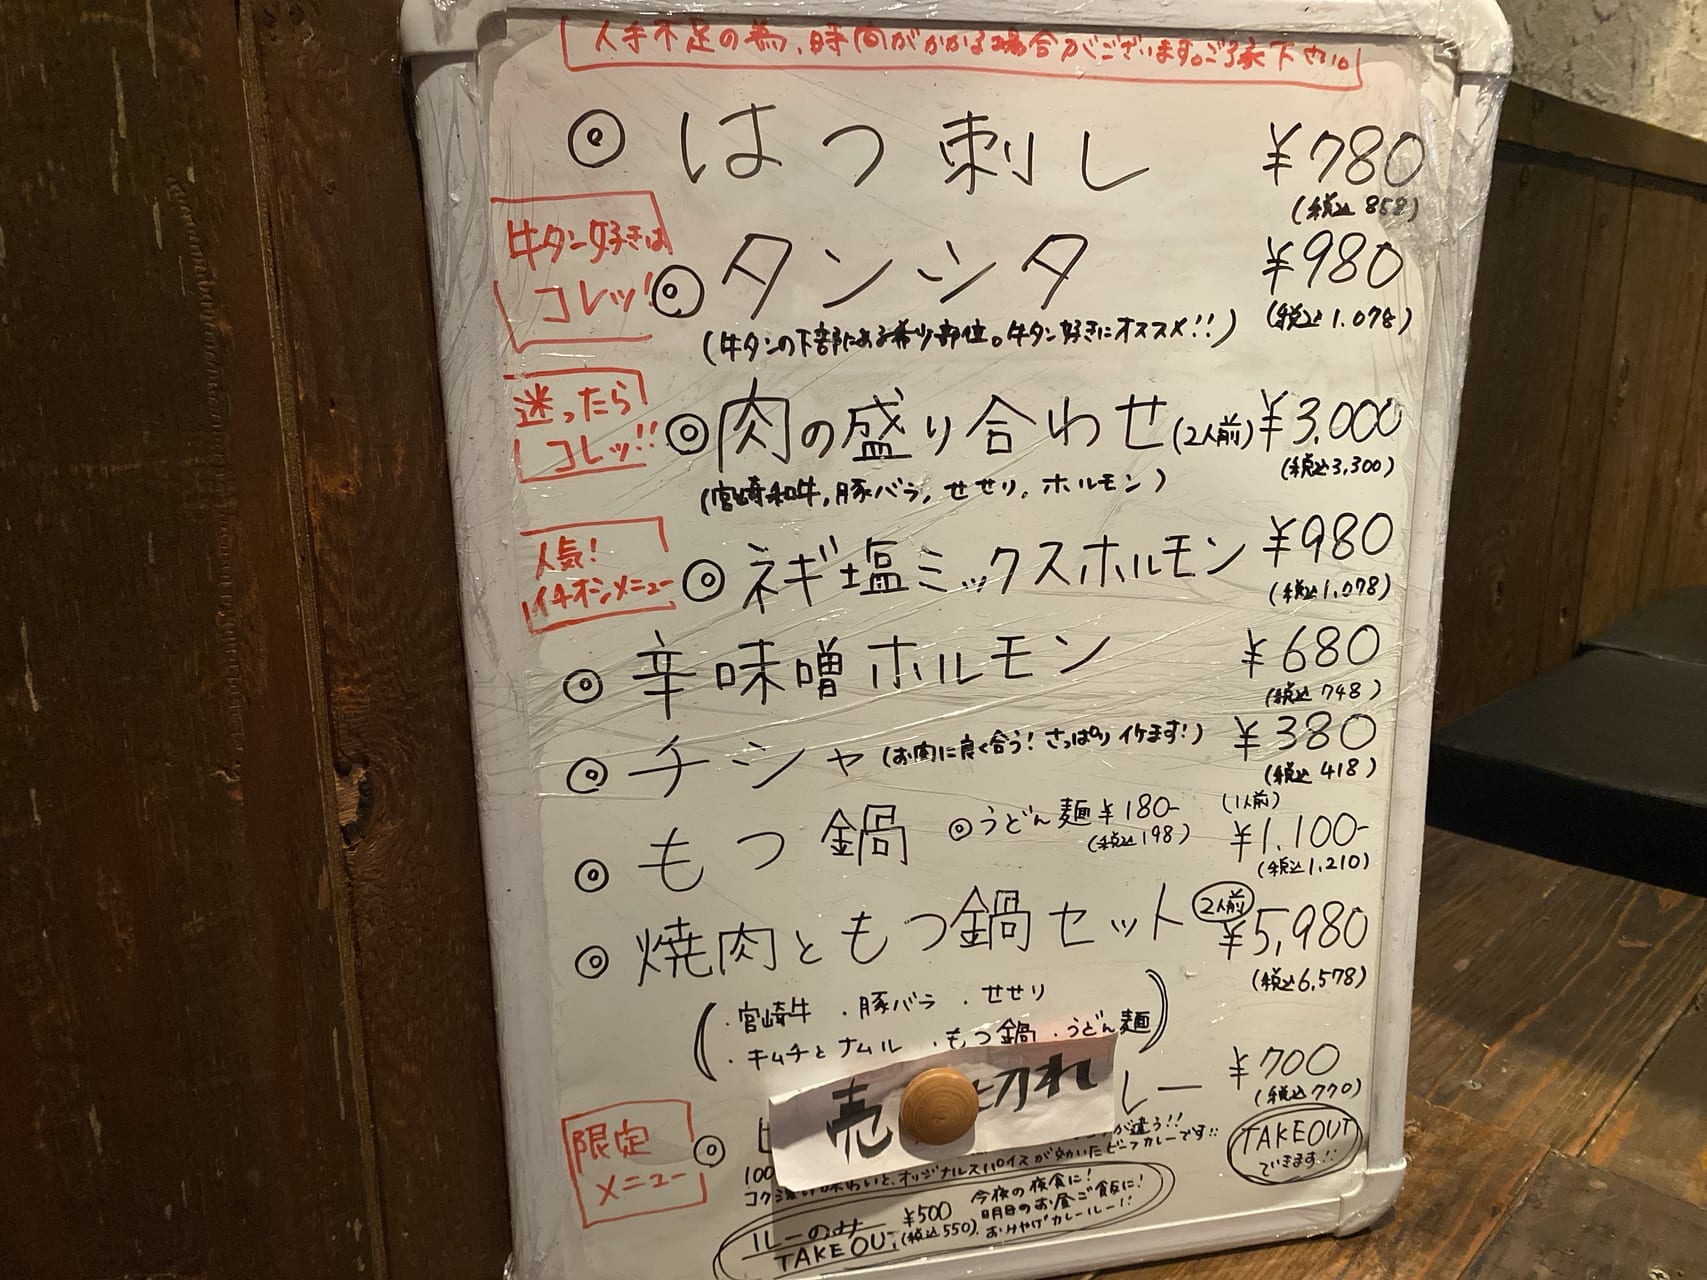 人手不足の為、時間がかかる場合がございます。ご了承下さい。
◎はつ刺し ¥780
(税込858)
牛タン好きは
コレッ!
◎タンシタ ¥980
(税込1.078)
(牛タンの下部にある希少部位。牛タン好きにオススメ!!)
迷ったら
コレッ!!
◎肉の盛り合わせ(2人前) ¥3.000
(税込3,300)
(宮崎和牛,豚バラ,せせり,ホルモン)
人気!
イチオシメニュー
◎ネギ塩ミックスホルモン ¥980
(税込1,078)
◎辛味噌ホルモン ¥680
(税込748)
◎チシャ(お肉に良く合う!さっぱりイケます!) ¥380
(税込418)
◎もつ鍋 ◎うどん麺¥180-
(税込198)
(1人前)
¥1.100-
(税込1,210)
◎焼肉ともつ鍋セット 2人前 ¥5,980
(税込6,578)
(・宮崎牛 ・豚バラ ・せせり
・キムチとナムル ・もつ鍋・うどん麺)
限定
メニュー
◎ 売 切れ レー ¥700
(税込770)
TAKEOUT
できます!!
100 が違う!!
味わいと、オリジナルスパイスが効いたビーフカレーです!!
ルーのみ ¥500
TAKEOUT (税込550)
今夜の夜食に!
明日のお昼ご飯に!
おみやげカレールー!!